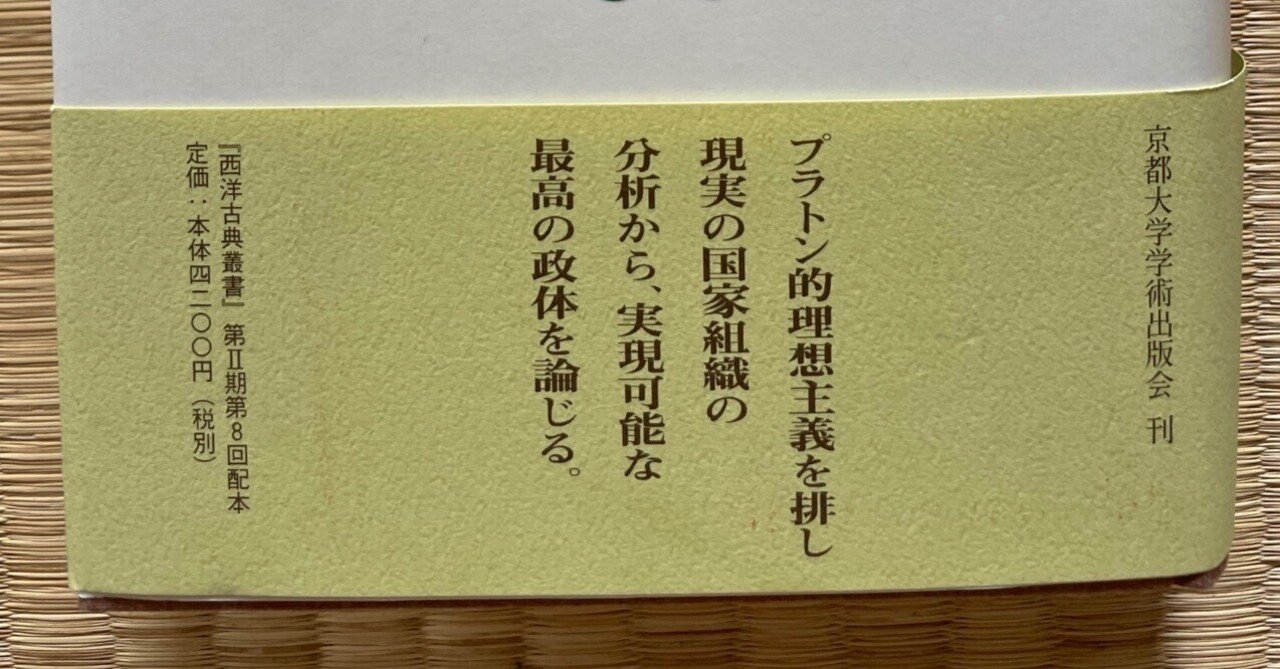 京都大学学術出版会 刊
プラトン的理想主義を排し
現実の国家組織の
分析から、実現可能な
最高の政体を論じる。
『西洋古典叢書』 第Ⅱ期第8回配本
定価：本体四二〇〇円（税別）